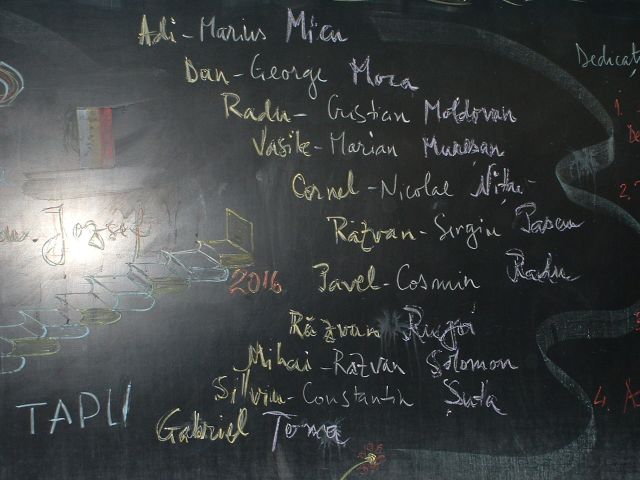 Adi-Marius Micu
Dan-George Moca
Radu-Cristian Moldovan
Vasile-Marian Muresan
Cornel-Nicolae Nițu
Răzvan-Sergiu Pascu
Pavel-Cosmin Radu
Răzvan Rugja
Mihai-Răzvan Solomon
Silviu-Constantin Suta
Gabriel Toma
József
2016
TAPLI
Dedicat
1.
De
2.
3
4. A